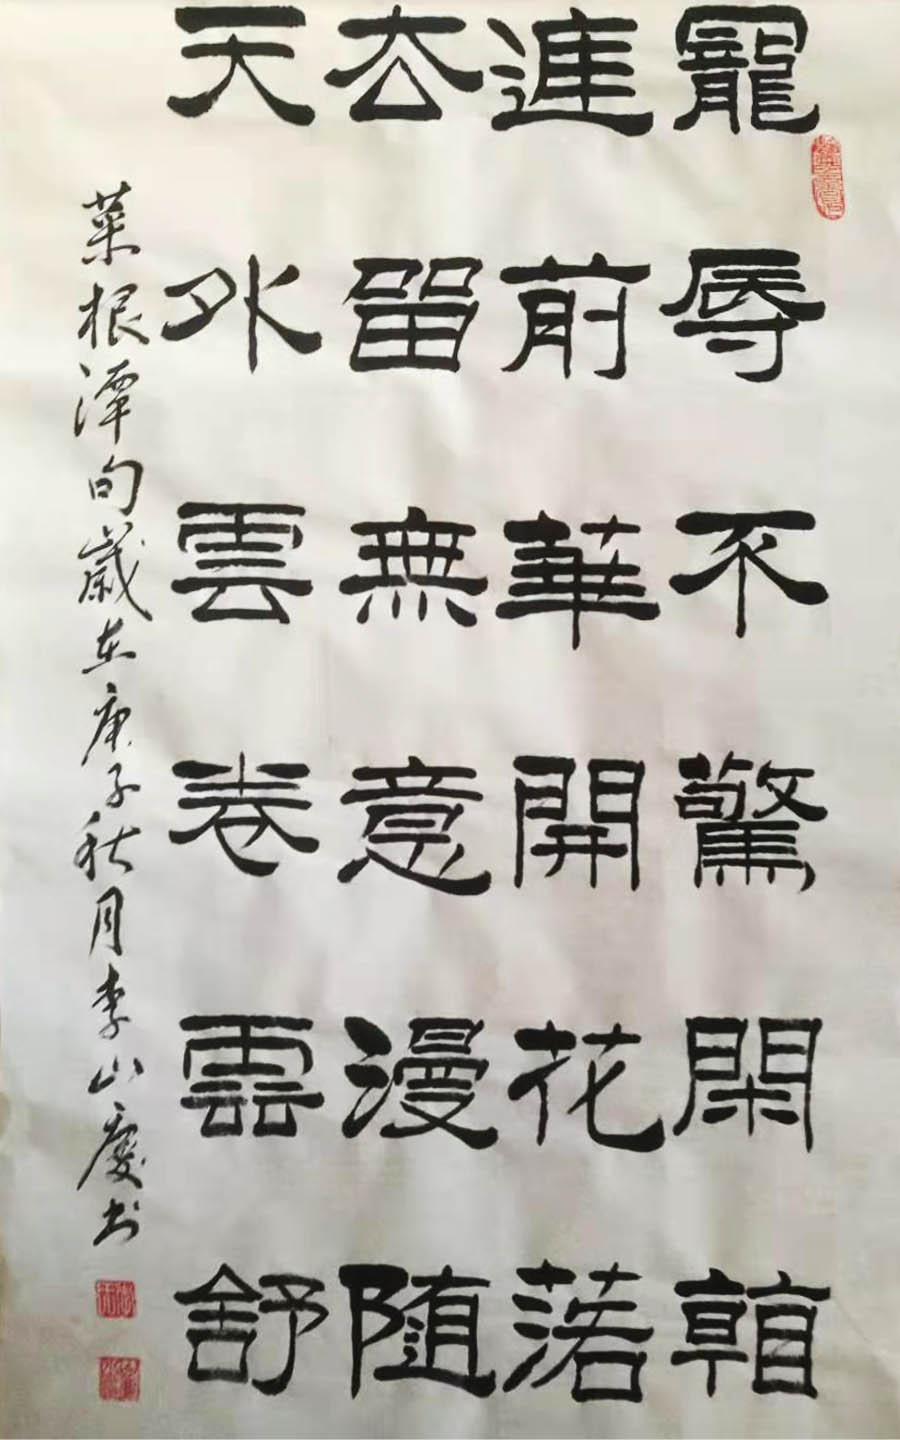 寵辱不驚閑朝
進前華開花落
去留無意漫隨
天外雲卷雲舒
菜根潭句歲在庚子秋月李山慶书